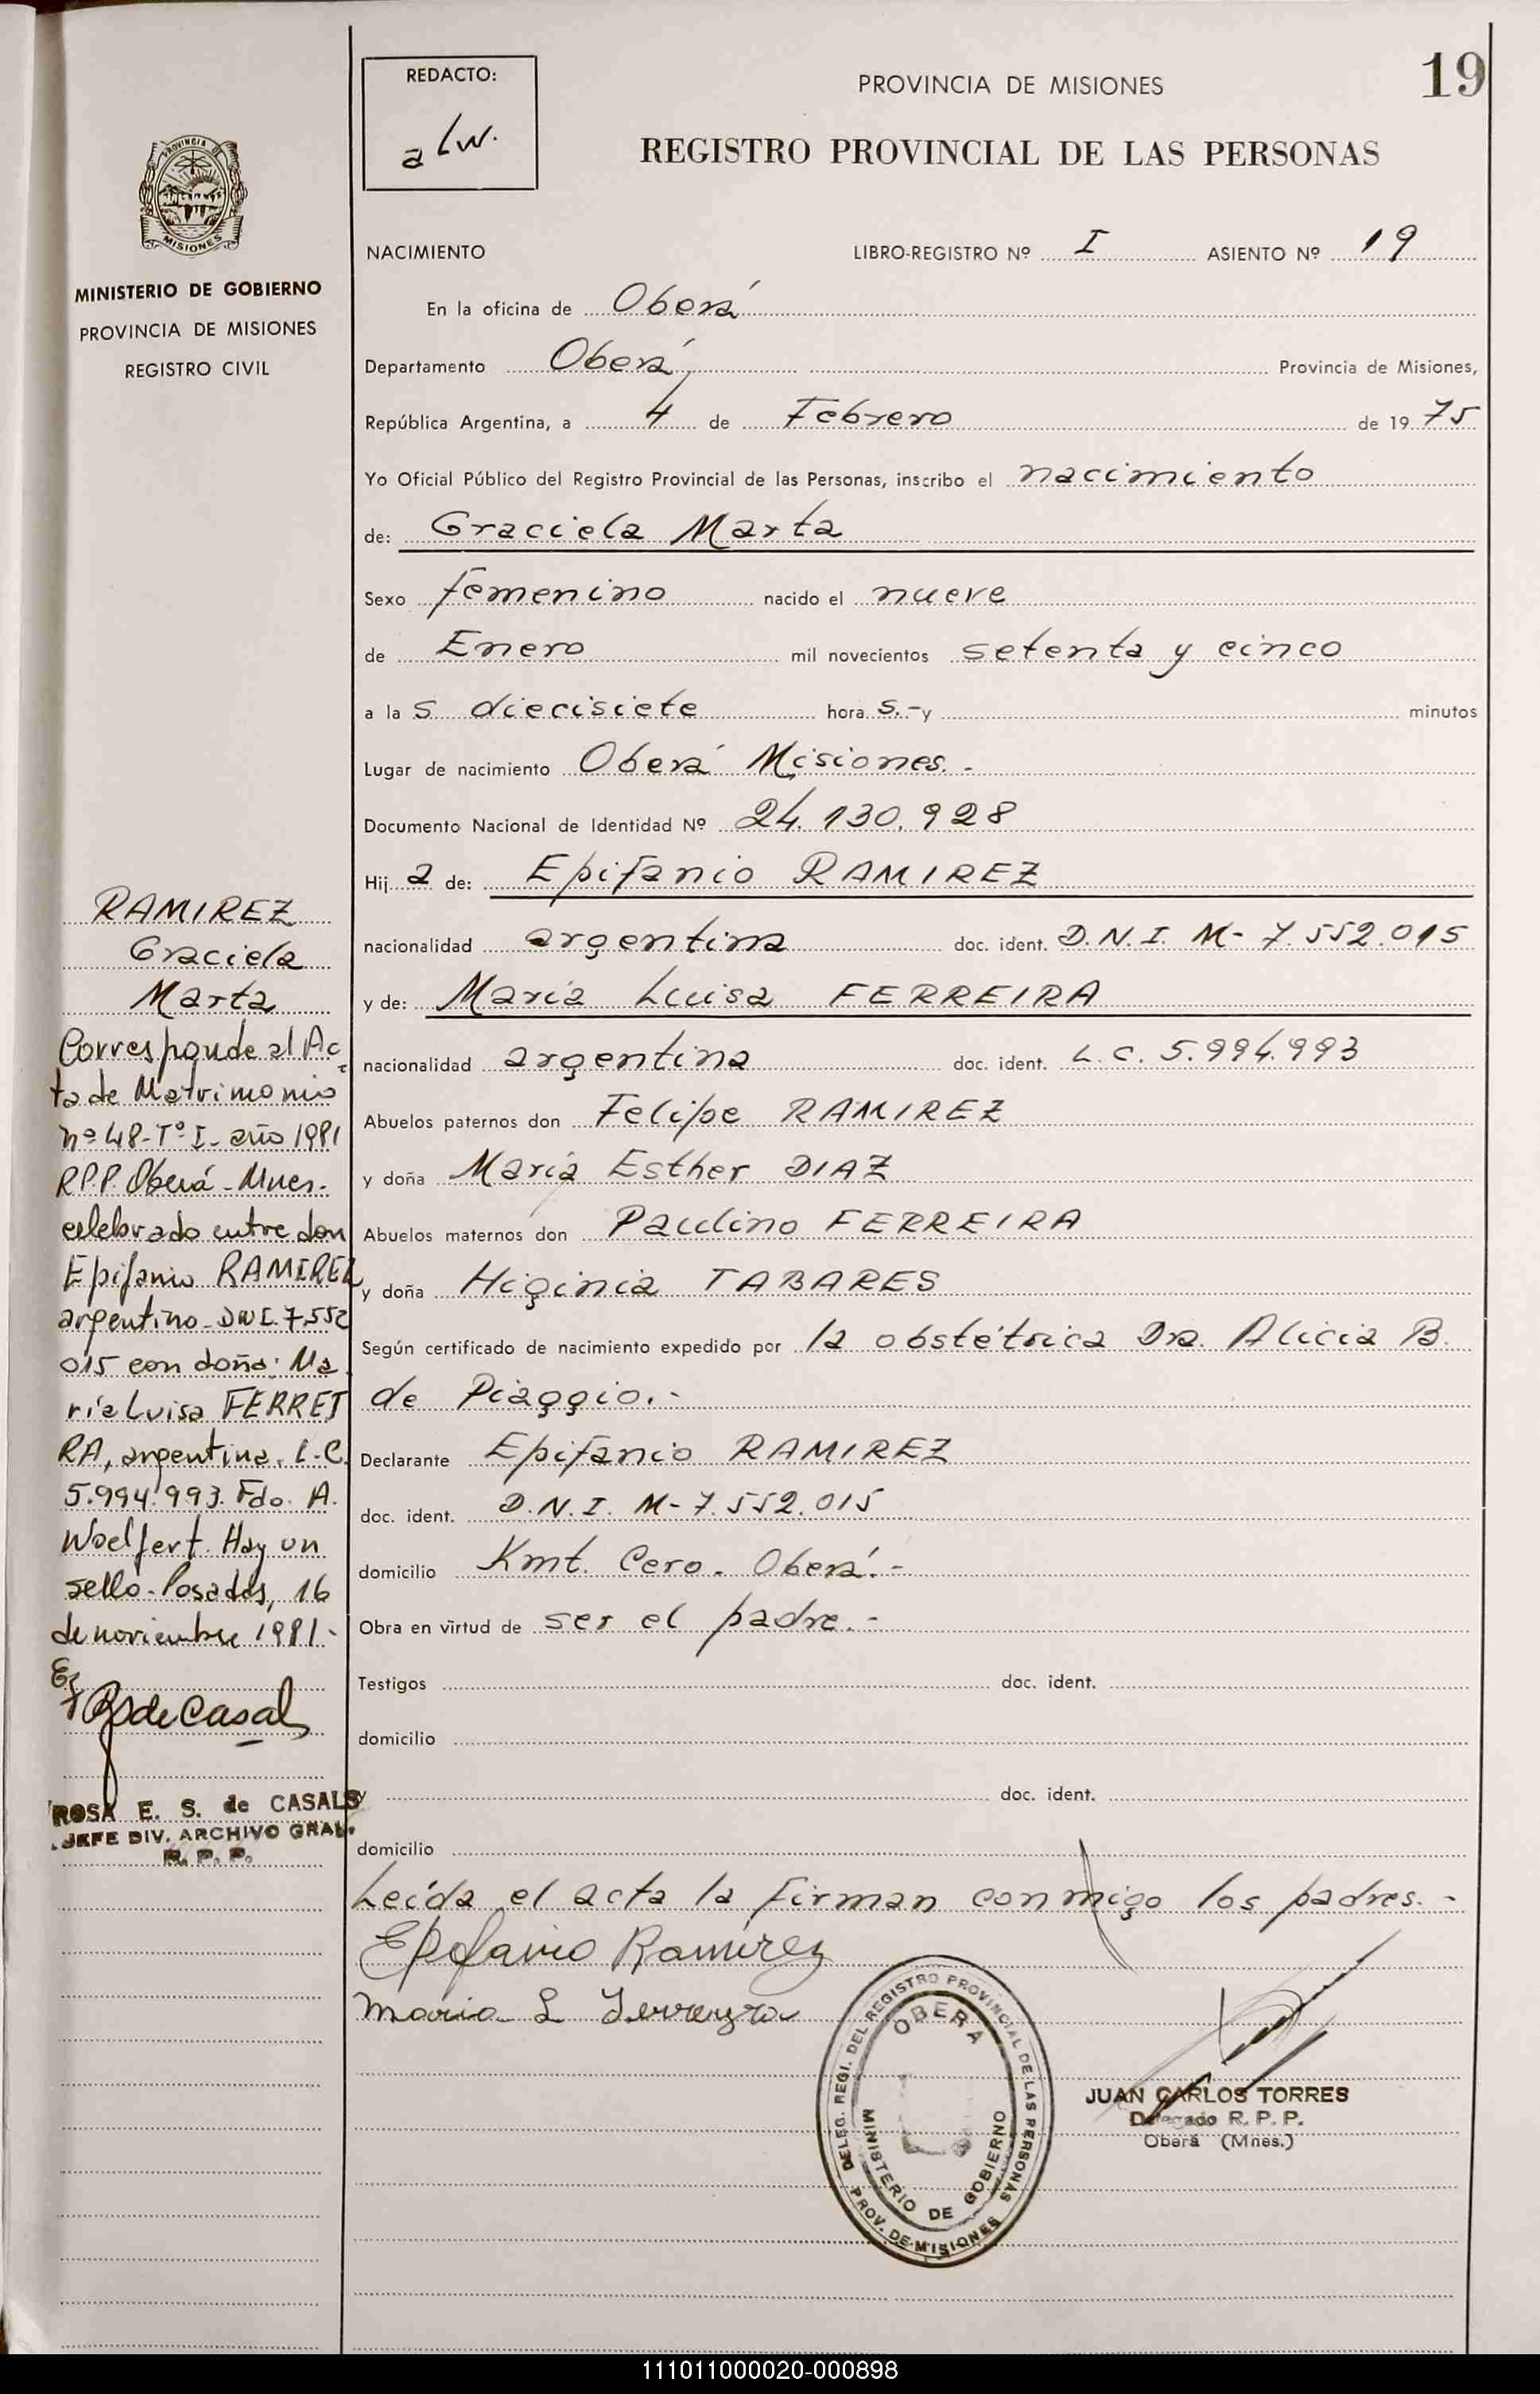 REDACTO:
a Lw.
PROVINCIA DE MISIONES
19
REGISTRO PROVINCIAL DE LAS PERSONAS
PROVINCIA DE
MISIONES
MINISTERIO DE GOBIERNO
PROVINCIA DE MISIONES
REGISTRO CIVIL
NACIMIENTO LIBRO-REGISTRO Nº I ASIENTO Nº 19
En la oficina de Oberá
Departamento Oberá, Provincia de Misiones,
República Argentina, a 4 de Febrero de 1975
Yo Oficial Público del Registro Provincial de las Personas, inscribo el nacimiento
de: Graciela Marta
Sexo femenino nacido el nueve
de Enero mil novecientos setenta y cinco
a las diecisiete horas.-y minutos
Lugar de nacimiento Oberá Misiones.-
Documento Nacional de Identidad Nº 24.130.928
Hija de: Epifanio RAMIREZ
nacionalidad argentina doc. ident. D.N.I. M- 7.552.015
y de: María Luisa FERREIRA
nacionalidad argentina doc. ident. L.C. 5.994.993
Abuelos paternos don Felipe RAMIREZ
y doña María Esther DIAZ
Abuelos maternos don Paulino FERREIRA
y doña Higinia TABARES
Según certificado de nacimiento expedido por la obstétrica Dra. Alicia B.
de Piaggio.-
Declarante Epifanio RAMIREZ
doc. ident. D.N.I. M- 7.552.015
domicilio Kmt. Cero. Oberá.-
Obra en virtud de ser el padre.-
Testigos doc. ident.
domicilio
y doc. ident.
domicilio
Leída el acta la firman conmigo los padres.-
Epifanio Ramirez
Maria L Ferreyra
RAMIREZ
Graciela
Marta
Corresponde al Ac
ta de Matrimonio
nº 48-Tº I- año 1981
RPP. Oberá-Mnes.
celebrado entre don
Epifanio RAMIREZ
argentino-DNI.7.552
015 con doña: Ma
ría Luisa FERREI
RA, argentina. L.C.
5.994.993. Fdo. A.
Woelfert. Hay un
sello-Posadas, 16
de noviembre 1981.-
de Casals
ROSA E. S. de CASALS
JEFE DIV. ARCHIVO GRAL.
R. P. P.
DELEG. REGI. DEL REGISTRO PROVINCIAL DE LAS PERSONAS
OBERA
MINISTERIO DE GOBIERNO
PROV. DE MISIONES
JUAN CARLOS TORRES
Delegado R. P. P.
Oberá (Mnes.)
111011000020-000898